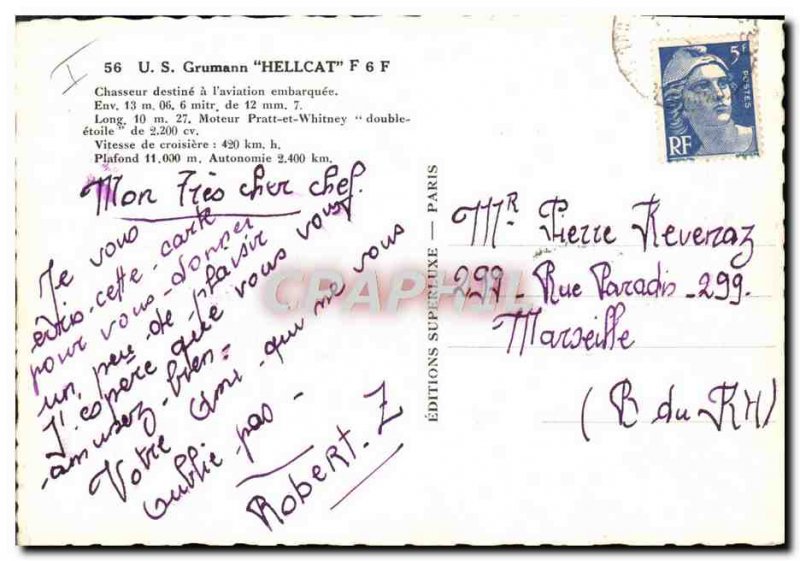 I
56 U. S. Grumann "HELLCAT" F 6 F
Chasseur destiné à l'aviation embarquée.
Env. 13 m. 06. 6 mitr. de 12 mm. 7.
Long. 10 m. 27. Moteur Pratt-et-Whitney "double-
étoile" de 2.200 cv.
Vitesse de croisière : 420 km. h.
Plafond 11.000 m. Autonomie 2.400 km.
Mon Très cher chef.
Je vous
écris cette carte
pour vous donner
un peu de plaisir
J'espère que vous vous
amusez bien.
Votre Ami qui ne vous
oublie pas -
Robert. Z
ÉDITIONS SUPERLUXE — PARIS
5F
POSTES
RF
Mr Pierre Revenaz
299 - Rue Paradis - 299.
Marseille
(B du RH)
CPAPHIL